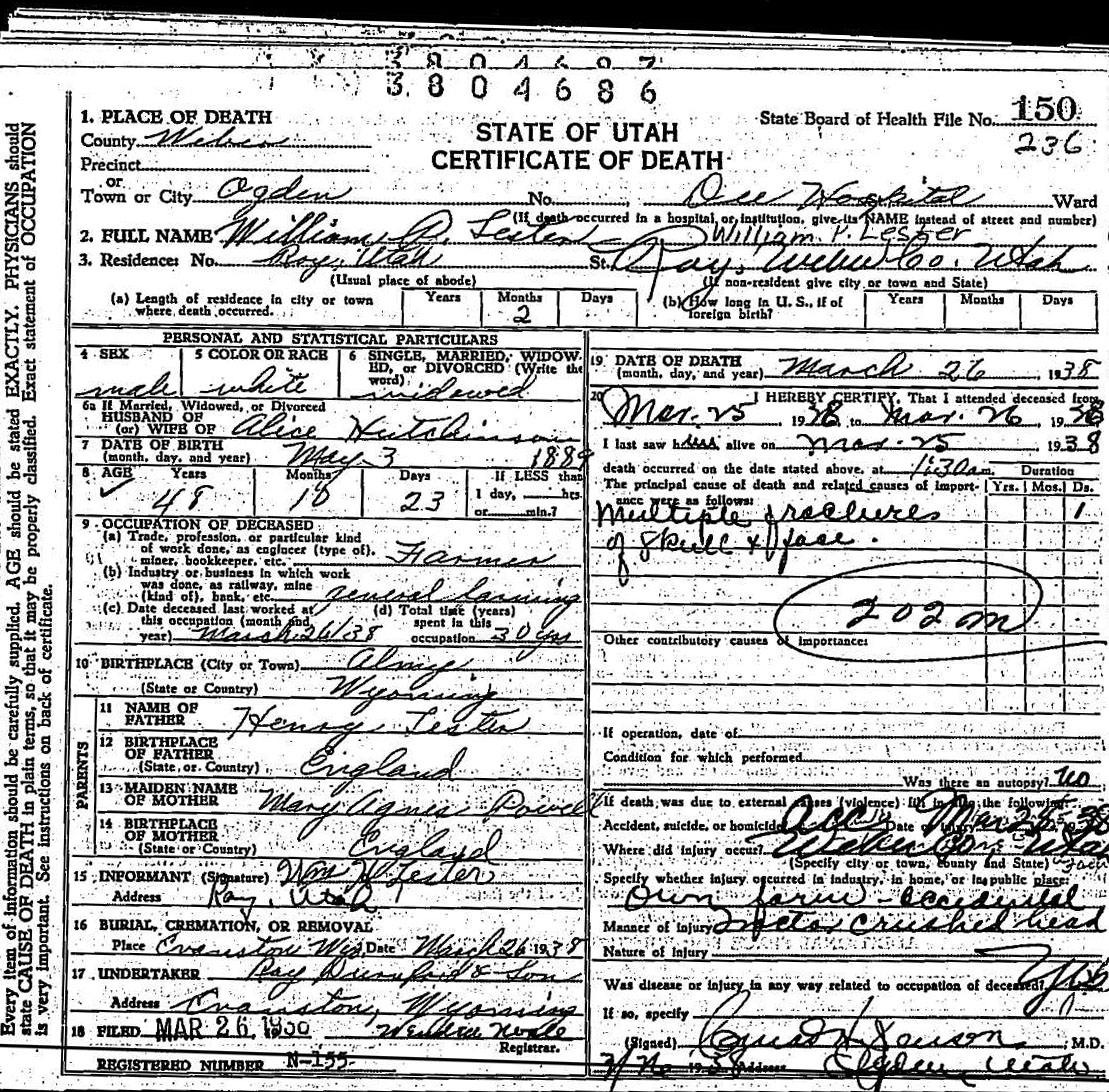 3804697
3804686
1. PLACE OF DEATH
County Weber
Precinct
or
Town or City Ogden No. Dee Hospital Ward
STATE OF UTAH
CERTIFICATE OF DEATH
State Board of Health File No. 150
236
(If death occurred in a hospital, or institution, give its NAME instead of street and number)
2. FULL NAME William P. Lester William P. Lester
3. Residence: No. Roy, Utah St. Roy, Weber Co. Utah
(Usual place of abode) (If non-resident give city or town and State)
(a) Length of residence in city or town where death occurred. Years Months 2 Days
(b) How long in U. S., if of foreign birth? Years Months Days
PERSONAL AND STATISTICAL PARTICULARS
4 SEX male
5 COLOR OR RACE white
6 SINGLE, MARRIED, WIDOWED, or DIVORCED (Write the word) widowed
6a If Married, Widowed, or Divorced
HUSBAND OF
(or) WIFE OF Alice Hutchinson
7 DATE OF BIRTH
(month, day, and year) May 3 1889
8 AGE Years Months Days If LESS than
48 10 23 1 day, hrs.
or min.?
9 OCCUPATION OF DECEASED
(a) Trade, profession, or particular kind
of work done, as engineer (type of),
miner, bookkeeper, etc. Farmer
(b) Industry or business in which work
was done, as railway, mine
(kind of), bank, etc. general farming
(c) Date deceased last worked at
this occupation (month and
year) March 26/38
(d) Total time (years)
spent in this
occupation 30 yrs
10 BIRTHPLACE (City or Town) Almy
(State or Country) Wyoming
PARENTS
11 NAME OF
FATHER Henry Lester
12 BIRTHPLACE
OF FATHER
(State or Country) England
13 MAIDEN NAME
OF MOTHER Mary Agnes Powell
14 BIRTHPLACE
OF MOTHER
(State or Country) England
15 INFORMANT (Signature) Wm W Lester
Address Roy, Utah
16 BURIAL, CREMATION, OR REMOVAL
Place Evanston Wyo, Date March 26 1938
17 UNDERTAKER Ray & Son
Address Evanston, Wyoming
18 FILED MAR 26 1938
Registrar.
REGISTERED NUMBER N-155
19 DATE OF DEATH
(month, day, and year) March 26, 1938
20 I HEREBY CERTIFY, That I attended deceased from
Mar. 25 1938 to Mar. 26, 1938
I last saw him alive on Mar. 25 1938
death occurred on the date stated above, at 1:30 am. Duration
The principal cause of death and related causes of importance were as follows: Yrs. Mos. Ds.
Multiple fractures 1
of skull & face.
202 m
Other contributory causes of importance:
If operation, date of
Condition for which performed
Was there an autopsy? no
If death was due to external causes (violence) fill in the following:
Accident, suicide, or homicide Acc Date of injury Mar 25 - 38
Where did injury occur? Weber Co - Utah
(Specify city or town, county and State)
Specify whether injury occurred in industry, in home, or in public place:
Own farm - accidental
Manner of injury crushed head
Nature of injury
Was disease or injury in any way related to occupation of deceased? Yes
If so, specify
(Signed) M.D.
1938 Address Ogden Utah
Every item of information should be carefully supplied. AGE should be stated EXACTLY. PHYSICIANS should
state CAUSE OF DEATH in plain terms, so that it may be properly classified. Exact statement of OCCUPATION
is very important. See instructions on back of certificate.